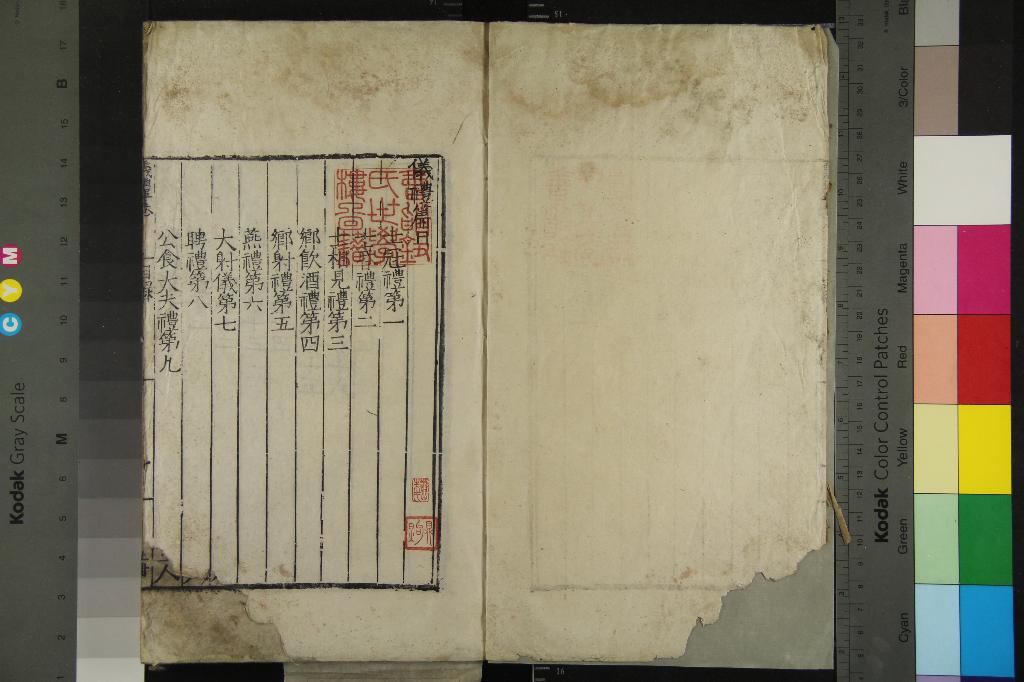 儀禮篇目
士冠禮第一
士昏禮第二
士相見禮第三
鄉飲酒禮第四
鄉射禮第五
燕禮第六
大射儀第七
聘禮第八
公食大夫禮第九
Kodak Gray Scale
C Y M
Kodak Color Control Patches
3/Color
White
Magenta
Red
Yellow
Green
Cyan